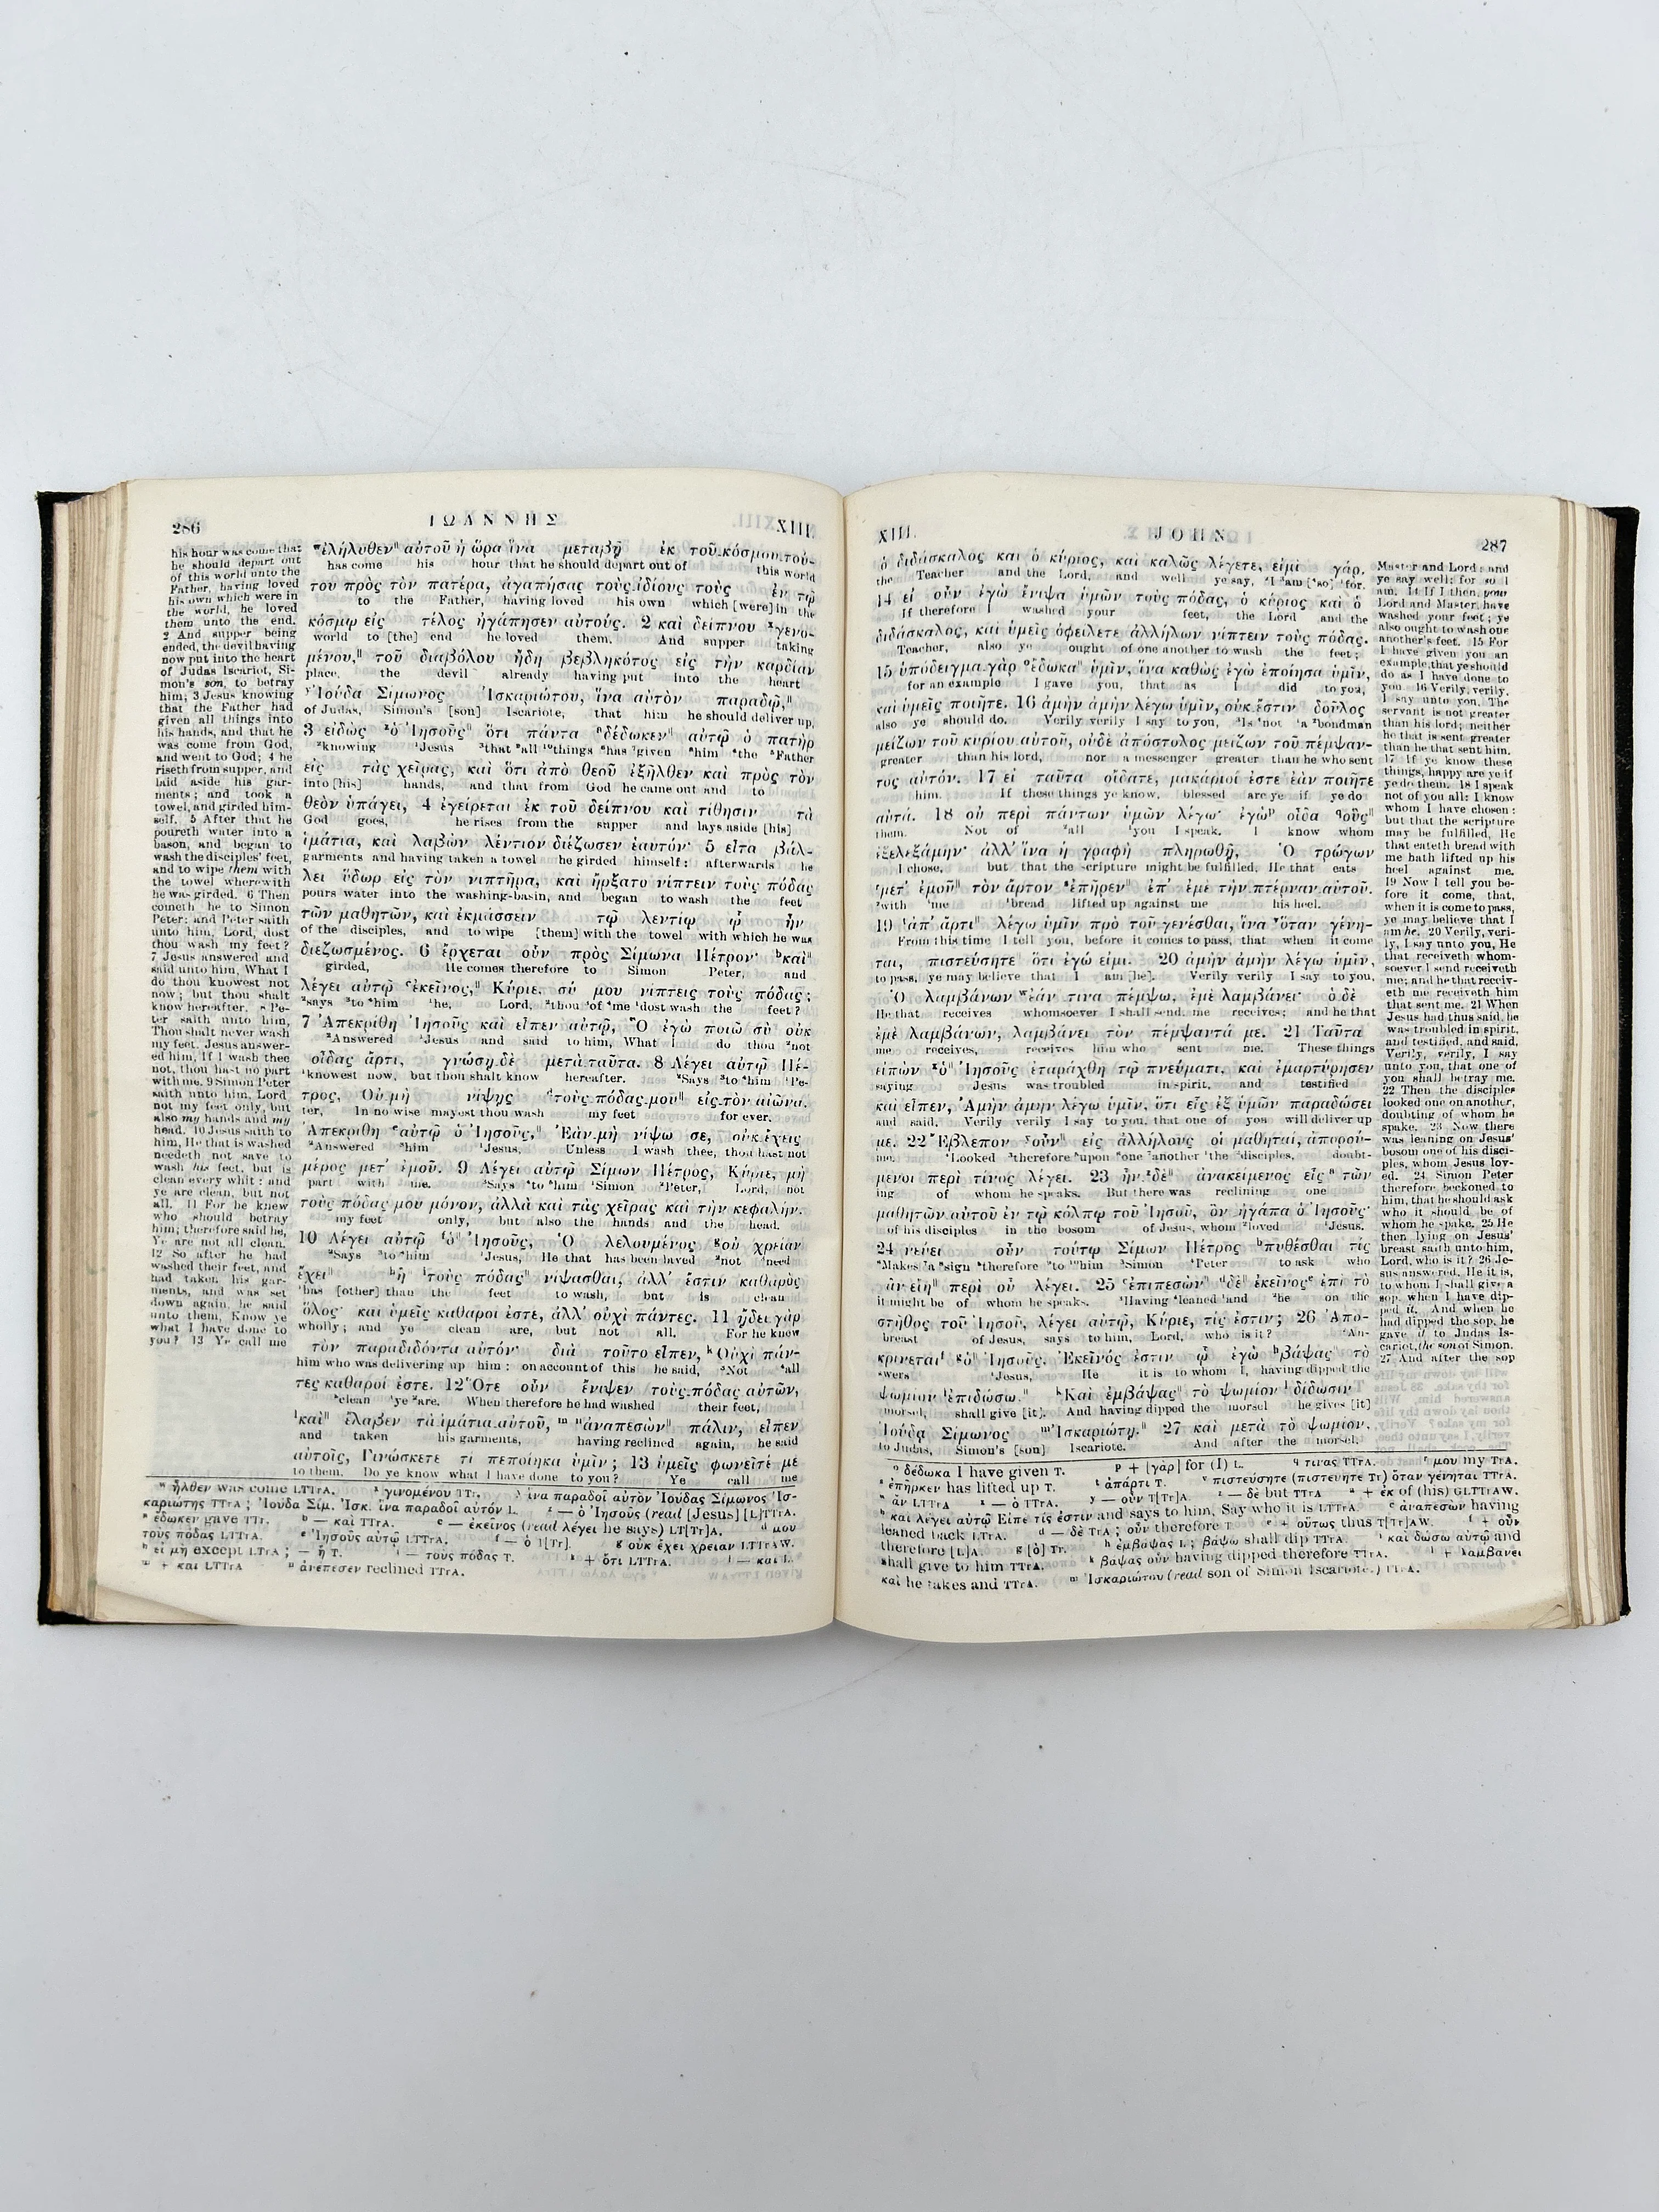 286
ΙΩΑΝΝΗΣ
XIII.
his hour was come that
he should depart out
of this world unto the
Father, having loved
his own which were in
the world, he loved
them unto the end.
2 And supper being
ended, the devil having
now put into the heart
of Judas Iscariot, Si-
mon's son, to betray
him; 3 Jesus knowing
that the Father had
given all things into
his hands, and that he
was come from God,
and went to God; 4 he
riseth from supper, and
laid aside his gar-
ments; and took a
towel, and girded him-
self. 5 After that he
poureth water into a
bason, and began to
wash the disciples' feet,
and to wipe them with
the towel wherewith
he was girded. 6 Then
cometh he to Simon
Peter: and Peter saith
unto him, Lord, dost
thou wash my feet?
7 Jesus answered and
said unto him, What I
do thou knowest not
now; but thou shalt
know hereafter. 8 Pe-
ter saith unto him,
Thou shalt never wash
my feet. Jesus answer-
ed him, If I wash thee
not, thou hast no part
with me. 9 Simon Peter
saith unto him, Lord,
not my feet only, but
also my hands and my
head. 10 Jesus saith to
him, He that is washed
needeth not save to
wash his feet, but is
clean every whit: and
ye are clean, but not
all. 11 For he knew
who should betray
him; therefore said he,
Ye are not all clean.
12 So after he had
washed their feet, and
had taken his gar-
ments, and was set
down again, he said
unto them, Know ye
what I have done to
you? 13 Ye call me
ʷἐλήλυθεν‖ αὐτοῦ ἡ ὥρα ἵνα μεταβῇ ἐκ τοῦ κόσμου τού-
has come his hour that he should depart out of this world
του πρὸς τὸν πατέρα, ἀγαπήσας τοὺς ἰδίους τοὺς ἐν τῷ
to the Father, having loved his own which [were] in the
κόσμῳ εἰς τέλος ἠγάπησεν αὐτούς. 2 καὶ δείπνου ˣγενο-
world to [the] end he loved them. And supper taking
μένου,‖ τοῦ διαβόλου ἤδη βεβληκότος εἰς τὴν καρδίαν
place, the devil already having put into the heart
ʸἸούδα Σίμωνος Ἰσκαριώτου, ἵνα αὐτὸν παραδῷ,‖
of Judas, Simon's [son] Iscariote, that him he should deliver up,
3 εἰδὼς ᶻὁ Ἰησοῦς‖ ὅτι πάντα ᵃδέδωκεν‖ αὐτῷ ὁ πατὴρ
²knowing ¹Jesus ³that ⁸all ¹⁰things ⁶has ⁷given ⁹him ⁴the ⁵Father
εἰς τὰς χεῖρας, καὶ ὅτι ἀπὸ θεοῦ ἐξῆλθεν καὶ πρὸς τὸν
into [his] hands, and that from God he came out and to
θεὸν ὑπάγει, 4 ἐγείρεται ἐκ τοῦ δείπνου καὶ τίθησιν τὰ
God goes, he rises from the supper and lays aside [his]
ἱμάτια, καὶ λαβὼν λέντιον διέζωσεν ἑαυτόν· 5 εἶτα βάλ-
garments and having taken a towel he girded himself: afterwards he
λει ὕδωρ εἰς τὸν νιπτῆρα, καὶ ἤρξατο νίπτειν τοὺς πόδας
pours water into the washing-basin, and began to wash the feet
τῶν μαθητῶν, καὶ ἐκμάσσειν τῷ λεντίῳ ᾧ ἦν
of the disciples, and to wipe [them] with the towel with which he was
διεζωσμένος. 6 ἔρχεται οὖν πρὸς Σίμωνα Πέτρον· ᵇκαὶ‖
girded, He comes therefore to Simon Peter, and
λέγει αὐτῷ ᶜἐκεῖνος,‖ Κύριε, σύ μου νίπτεις τοὺς πόδας;
²says ³to ⁴him ¹he, Lord, ²thou ⁵of ⁶me ¹dost wash the feet?
7 Ἀπεκρίθη Ἰησοῦς καὶ εἶπεν αὐτῷ, Ὃ ἐγὼ ποιῶ σὺ οὐκ
²Answered ¹Jesus and said to him, What I do thou ²not
οἶδας ἄρτι, γνώσῃ δὲ μετὰ ταῦτα. 8 Λέγει αὐτῷ Πέ-
¹knowest now, but thou shalt know hereafter. ²Says ³to ⁴him ¹Pe-
τρος, Οὐ μὴ νίψῃς ᵈτοὺς πόδας μου‖ εἰς τὸν αἰῶνα.
ter, In no wise mayest thou wash my feet for ever.
Ἀπεκρίθη ᵉαὐτῷ ὁ Ἰησοῦς,‖ Ἐὰν μὴ νίψω σε, οὐκ ἔχεις
²Answered ³him ¹Jesus, Unless I wash thee, thou hast not
μέρος μετ' ἐμοῦ. 9 Λέγει αὐτῷ Σίμων Πέτρος, Κύριε, μὴ
part with me. ³Says ⁴to ⁵him ¹Simon ²Peter, Lord, not
τοὺς πόδας μου μόνον, ἀλλὰ καὶ τὰς χεῖρας καὶ τὴν κεφαλήν.
my feet only, but also the hands and the head.
10 Λέγει αὐτῷ ᶠὁ‖ Ἰησοῦς, Ὁ λελουμένος ᵍοὐ χρείαν
²Says ³to ⁴him ¹Jesus, He that has been laved ²not ³need
ἔχει‖ ʰἢ ⁱτοὺς πόδας‖ νίψασθαι, ἀλλ' ἔστιν καθαρὸς
¹has [other] than the feet to wash, but is clean
ὅλος· καὶ ὑμεῖς καθαροί ἐστε, ἀλλ' οὐχὶ πάντες. 11 ᾔδει γὰρ
wholly; and ye clean are, but not all. For he knew
τὸν παραδιδόντα αὐτόν· διὰ τοῦτο εἶπεν, ᵏ Οὐχὶ πάν-
him who was delivering up him: on account of this he said, ³Not ⁴all
τες καθαροί ἐστε. 12 Ὅτε οὖν ἔνιψεν τοὺς πόδας αὐτῶν,
⁵clean ¹ye ²are. When therefore he had washed their feet,
ˡκαὶ‖ ἔλαβεν τὰ ἱμάτια αὐτοῦ, ᵐ ⁿἀναπεσὼν‖ πάλιν, εἶπεν
and taken his garments, having reclined again, he said
αὐτοῖς, Γινώσκετε τί πεποίηκα ὑμῖν; 13 ὑμεῖς φωνεῖτέ με
to them. Do ye know what I have done to you? Ye call me
ʷ ἦλθεν was come LTTrA. ˣ γινομένου TTr. ʸ ἵνα παραδοῖ αὐτὸν Ἰούδας Σίμωνος Ἰσ-
καριώτης TTrA; Ἰούδα Σίμ. Ἰσκ. ἵνα παραδοῖ αὐτόν L. ᶻ — ὁ Ἰησοῦς (read [Jesus] [L]TTrA.
ᵃ ἔδωκεν gave TTr. ᵇ — καὶ TTrA. ᶜ — ἐκεῖνος (read λέγει he says) LT[Tr]A. ᵈ μου
τοὺς πόδας LTTrA. ᵉ Ἰησοῦς αὐτῷ LTTrA. ᶠ — ὁ T[Tr]. ᵍ οὐκ ἔχει χρείαν LTTrAW.
ʰ εἰ μὴ except LTrA; — ἢ T. ⁱ — τοὺς πόδας T. ᵏ + ὅτι LTTrA. ˡ — καὶ L.
ᵐ + καὶ LTTrA ⁿ ἀνέπεσεν reclined TTrA.
XIII.
JOHN.
287
ὁ διδάσκαλος καὶ ὁ κύριος, καὶ καλῶς λέγετε, εἰμὶ γάρ.
the Teacher and the Lord, and well ye say, ²I ³am [⁴so] ¹for.
14 εἰ οὖν ἐγὼ ἔνιψα ὑμῶν τοὺς πόδας, ὁ κύριος καὶ ὁ
If therefore I washed your feet, the Lord and the
διδάσκαλος, καὶ ὑμεῖς ὀφείλετε ἀλλήλων νίπτειν τοὺς πόδας.
Teacher, also ye ought of one another to wash the feet;
15 ὑπόδειγμα γὰρ ᵒἔδωκα‖ ὑμῖν, ἵνα καθὼς ἐγὼ ἐποίησα ὑμῖν,
for an example I gave you, that as I did to you,
καὶ ὑμεῖς ποιῆτε. 16 ἀμὴν ἀμὴν λέγω ὑμῖν, οὐκ ἔστιν δοῦλος
also ye should do. Verily verily I say to you, ³Is ⁴not ¹a ²bondman
μείζων τοῦ κυρίου αὐτοῦ, οὐδὲ ἀπόστολος μείζων τοῦ πέμψαν-
greater than his lord, nor a messenger greater than he who sent
τος αὐτόν. 17 εἰ ταῦτα οἴδατε, μακάριοί ἐστε ἐὰν ποιῆτε
him. If these things ye know, blessed are ye if ye do
αὐτά. 18 οὐ περὶ πάντων ὑμῶν λέγω· ἐγὼᵖ οἶδα ᑫοὓς‖
them. Not of ²all ¹you I speak. I know whom
ἐξελεξάμην· ἀλλ' ἵνα ἡ γραφὴ πληρωθῇ, Ὁ τρώγων
I chose, but that the scripture might be fulfilled, He that eats
ʳμετ' ἐμοῦ‖ τὸν ἄρτον ˢἐπῆρεν‖ ἐπ' ἐμὲ τὴν πτέρναν αὐτοῦ.
²with ³me ¹bread lifted up against me his heel.
19 ᵗἀπ' ἄρτι‖ λέγω ὑμῖν πρὸ τοῦ γενέσθαι, ἵνα ᵛὅταν γένη-
From this time I tell you, before it comes to pass, that when it come
ται, πιστεύσητε‖ ὅτι ἐγώ εἰμι. 20 ἀμὴν ἀμὴν λέγω ὑμῖν,
to pass, ye may believe that I am [he]. Verily verily I say to you,
Ὁ λαμβάνων ʷἐάν τινα πέμψω, ἐμὲ λαμβάνει· ὁ δὲ
He that receives whomsoever I shall send, me receives; and he that
ἐμὲ λαμβάνων, λαμβάνει τὸν πέμψαντά με. 21 Ταῦτα
me receives, receives him who sent me. These things
εἰπὼν ˣὁ‖ Ἰησοῦς ἐταράχθη τῷ πνεύματι, καὶ ἐμαρτύρησεν
saying Jesus was troubled in spirit, and testified
καὶ εἶπεν, Ἀμὴν ἀμὴν λέγω ὑμῖν, ὅτι εἷς ἐξ ὑμῶν παραδώσει
and said, Verily verily I say to you, that one of you will deliver up
με. 22 Ἔβλεπον ʸοὖν‖ εἰς ἀλλήλους οἱ μαθηταί, ἀπορού-
me. ⁴Looked ³therefore ⁵upon ⁶one ⁷another ¹the ²disciples, doubt-
μενοι περὶ τίνος λέγει. 23 ἦν ᶻδὲ‖ ἀνακείμενος εἷς ᵃ τῶν
ing of whom he speaks. But there was reclining one
μαθητῶν αὐτοῦ ἐν τῷ κόλπῳ τοῦ Ἰησοῦ, ὃν ἠγάπα ὁ Ἰησοῦς·
of his disciples in the bosom of Jesus, whom ²loved ¹Jesus.
24 νεύει οὖν τούτῳ Σίμων Πέτρος ᵇπυθέσθαι τίς
⁴Makes ⁵a ⁶sign ³therefore ⁷to ⁸him ¹Simon ²Peter to ask who
ἂν εἴη‖ περὶ οὗ λέγει. 25 ᶜἐπιπεσὼν‖ ᵈδὲ‖ ἐκεῖνοςᵉ ἐπὶ τὸ
it might be of whom he speaks. ³Having ⁴leaned ¹and ²he on the
στῆθος τοῦ Ἰησοῦ, λέγει αὐτῷ, Κύριε, τίς ἐστιν; 26 Ἀπο-
breast of Jesus, says to him, Lord, who is it? ²An-
κρίνεταιᶠ ᵍὁ‖ Ἰησοῦς, Ἐκεῖνός ἐστιν ᾧ ἐγὼ ʰβάψας τὸ
swers ¹Jesus, He it is to whom I, having dipped the
ψωμίον ⁱἐπιδώσω.‖ ᵏΚαὶ ἐμβάψας‖ τὸ ψωμίον ˡ δίδωσιν
morsel, shall give [it]. And having dipped the morsel he gives [it]
Ἰούδᾳ Σίμωνος ᵐἸσκαριώτῃ.‖ 27 καὶ μετὰ τὸ ψωμίον,
to Judas, Simon's [son] Iscariote. And after the morsel,
Master and Lord: and
ye say well; for so I
am. 14 If I then, your
Lord and Master, have
washed your feet; ye
also ought to wash one
another's feet. 15 For
I have given you an
example, that ye should
do as I have done to
you. 16 Verily, verily,
I say unto you, The
servant is not greater
than his lord; neither
he that is sent greater
than he that sent him.
17 If ye know these
things, happy are ye if
ye do them. 18 I speak
not of you all: I know
whom I have chosen:
but that the scripture
may be fulfilled, He
that eateth bread with
me hath lifted up his
heel against me.
19 Now I tell you be-
fore it come, that,
when it is come to pass,
ye may believe that I
am he. 20 Verily, veri-
ly, I say unto you, He
that receiveth whom-
soever I send receiveth
me; and he that receiv-
eth me receiveth him
that sent me. 21 When
Jesus had thus said, he
was troubled in spirit,
and testified, and said,
Verily, verily, I say
unto you, that one of
you shall betray me.
22 Then the disciples
looked one on another,
doubting of whom he
spake. 23 Now there
was leaning on Jesus'
bosom one of his disci-
ples, whom Jesus lov-
ed. 24 Simon Peter
therefore beckoned to
him, that he should ask
who it should be of
whom he spake. 25 He
then lying on Jesus'
breast saith unto him,
Lord, who is it? 26 Je-
sus answered, He it is,
to whom I shall give a
sop, when I have dip-
ped it. And when he
had dipped the sop, he
gave it to Judas Is-
cariot, the son of Simon.
27 And after the sop
ᵒ δέδωκα I have given T. ᵖ + [γὰρ] for (I) L. ᑫ τίνας TTrA. ʳ μου my TrA.
ˢ ἐπῆρκεν has lifted up T. ᵗ ἀπάρτι T. ᵛ πιστεύσητε (πιστεύητε Tr) ὅταν γένηται TTrA.
ʷ ἄν LTTrA ˣ — ὁ TTrA. ʸ — οὖν T[Tr]A. ᶻ — δὲ but TTrA ᵃ + ἐκ of (his) GLTTrAW.
ᵇ καὶ λέγει αὐτῷ Εἰπὲ τίς ἐστιν and says to him, Say who it is LTTrA. ᶜ ἀναπεσὼν having
leaned back LTrA. ᵈ — δὲ TrA; οὖν therefore T. ᵉ + οὕτως thus T[Tr]AW. ᶠ + οὖν
therefore [L]A. ᵍ [ὁ] Tr. ʰ ἐμβάψας L; βάψω shall dip TTrA. ⁱ καὶ δώσω αὐτῷ and
shall give to him TTrA. ᵏ βάψας οὖν having dipped therefore TTrA. ˡ + λαμβάνει
καὶ he takes and TTrA. ᵐ Ἰσκαριώτου (read son of Simon Iscariote.) TTrA.